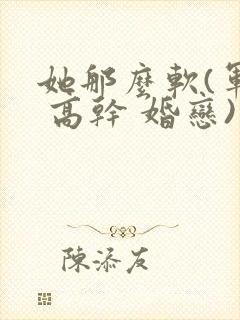 她那麼軟(軍
高幹 婚戀)
陳添友